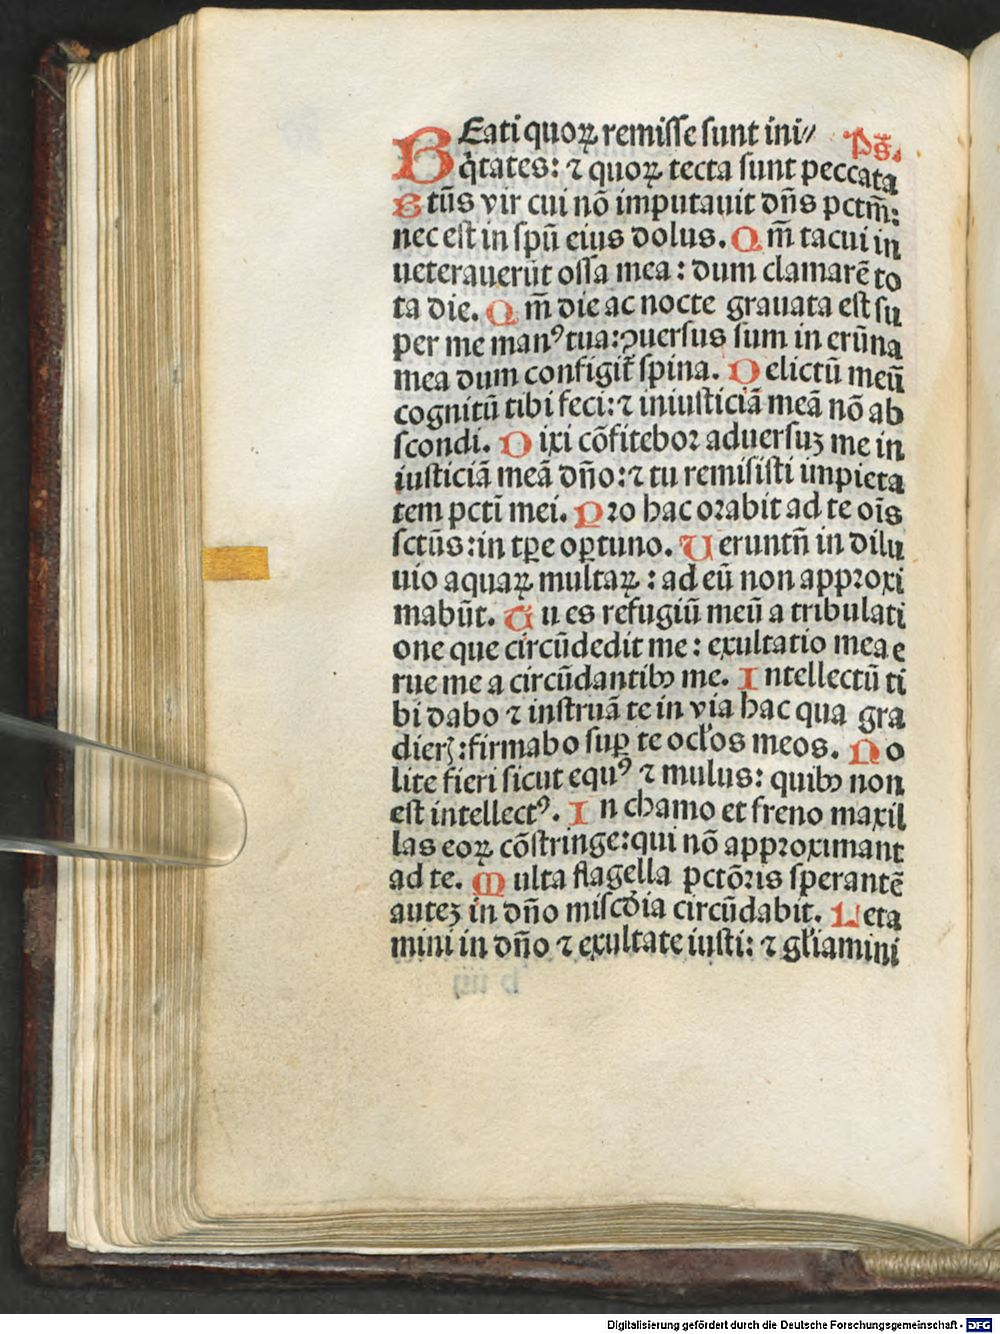 BEati quoꝝ remisse sunt ini⸗ Ps̄.
q̇tates: ⁊ quoꝝ tecta sunt peccata
Btūs vir cui nō imputauit dn̄s pctm̄:
nec est in spū eius dolus. Qm̄ tacui in
ueterauerūt ossa mea: dum clamarē to
ta die. Qm̄ die ac nocte grauata est su
per me manꝰ tua: ꝯuersus sum in erūna
mea dum configit᷑ spina. Delictū meū
cognitū tibi feci: ⁊ iniusticiā meā nō ab
scondi. Dixi cōfitebor aduersuȝ me in
iusticiā meā dn̄o: ⁊ tu remisisti impieta
tem pcti mei. Pro hac orabit ad te oīs
sctūs: in tꝑe oꝑtuno. Ueruntn̄ in dilu
uio aquaꝝ multaꝝ: ad eū non approxi
mabūt. Tu es refugiū meū a tribulati
one que circūdedit me: exultatio mea e
rue me a circūdantibꝫ me. Intellectū ti
bi dabo ⁊ instruā te in via hac qua gra
dierꝭ: firmabo suꝑ te ocl̓os meos. No
lite fieri sicut equꝰ ⁊ mulus: quibꝫ non
est intellectꝰ. In chamo et freno maxil
las eoꝝ cōstringe: qui nō approximant
ad te. Multa flagella pctōris sperantē
auteȝ in dn̄o misc̄dia circūdabit. Leta
mini in dn̄o ⁊ exultate iusti: ⁊ gl̓iamini
Digitalisierung gefördert durch die Deutsche Forschungsgemeinschaft - DFG